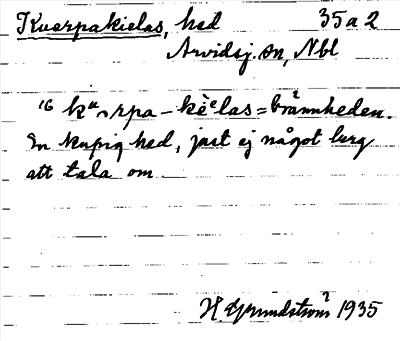 Kuorpakielas, hed 35 a 2
Arvidsj. sn, Nbl
"k rpa-kèlas = brännheden.
En kupig hed, just ej något berg
att tala om
H. Grundström 1935